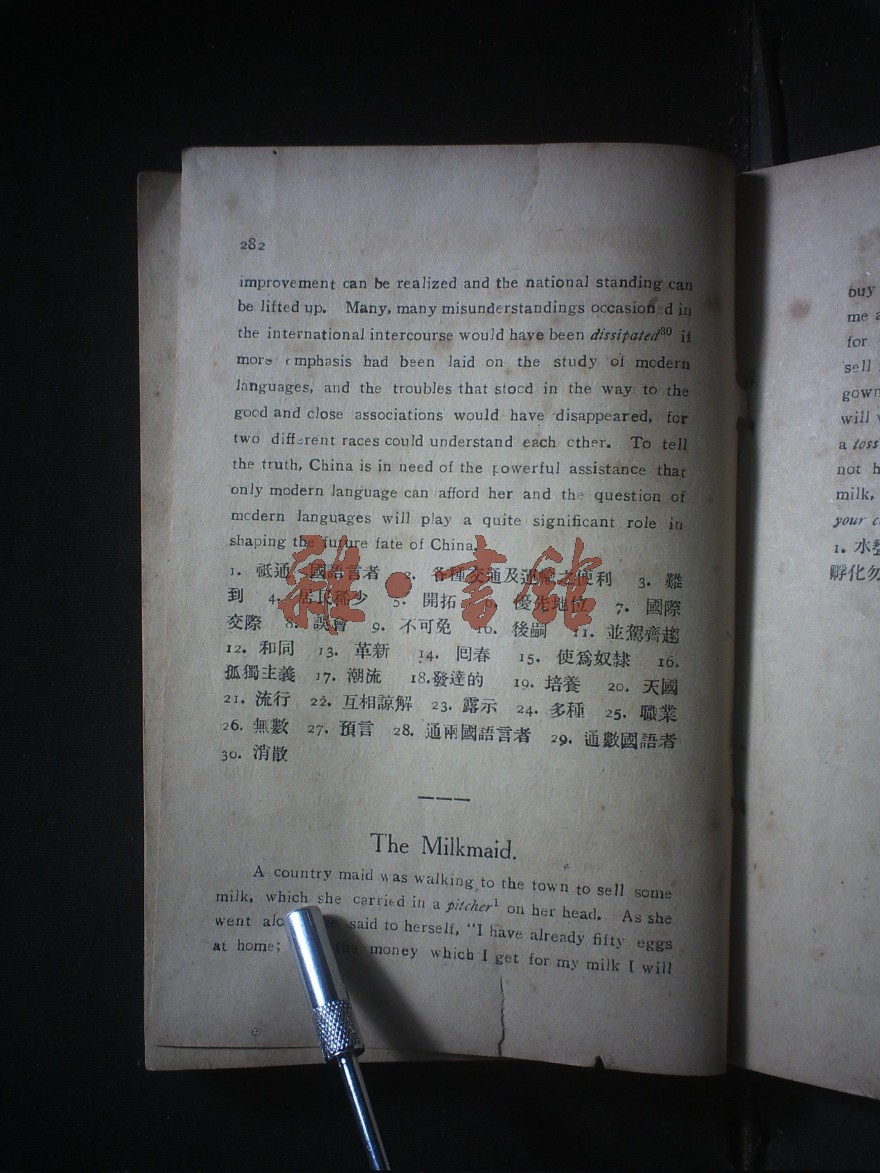 282
improvement can be realized and the national standing can
be lifted up. Many, many misunderstandings occasioned in
the international intercourse would have been dissipated30 if
more emphasis had been laid on the study of modern
languages, and the troubles that stood in the way to the
good and close associations would have disappeared, for
two different races could understand each other. To tell
the truth, China is in need of the powerful assistance that
only modern language can afford her and the question of
modern languages will play a quite significant role in
shaping the future fate of China.
1. 祗通一國語言者 2. 各種交通及運輸之便利 3. 難
到 4. 居民稀少 5. 開拓 6. 優先地位 7. 國際
交際 8. 誤會 9. 不可免 10. 後嗣 11. 並駕齊趨
12. 和同 13. 革新 14. 囘春 15. 使爲奴隸 16.
孤獨主義 17. 潮流 18. 發達的 19. 培養 20. 天國
21. 流行 22. 互相諒解 23. 露示 24. 多種 25. 職業
26. 無數 27. 預言 28. 通兩國語言者 29. 通數國語者
30. 消散
雜·書館
The Milkmaid.
A country maid was walking to the town to sell some
milk, which she carried in a pitcher1 on her head. As she
went said to herself, "I have already fifty eggs
at home; money which I get for my milk I will
buy
me a
for
sell
gown
will
a toss
not h
milk,
your
1. 水
孵化勿